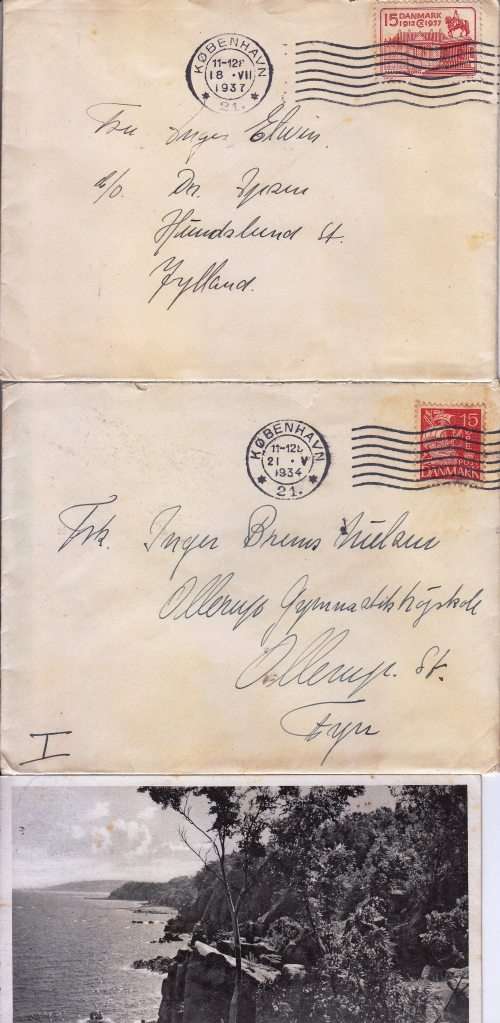 KØBENHAVN
11-12F
18 · VII
1937
* 21. *
15 DANMARK
1912 C 1937
Fru Inger Elwin.
c/o. Dr.
Hundslund St.
Jylland.
KØBENHAVN
11-12F
21 · V
1934
* 21. *
15
DANMARK
Frk. Inger Brems Nielsen
Ollerup Gymnastikhöjskole
Ollerup. St.
Fyn
I